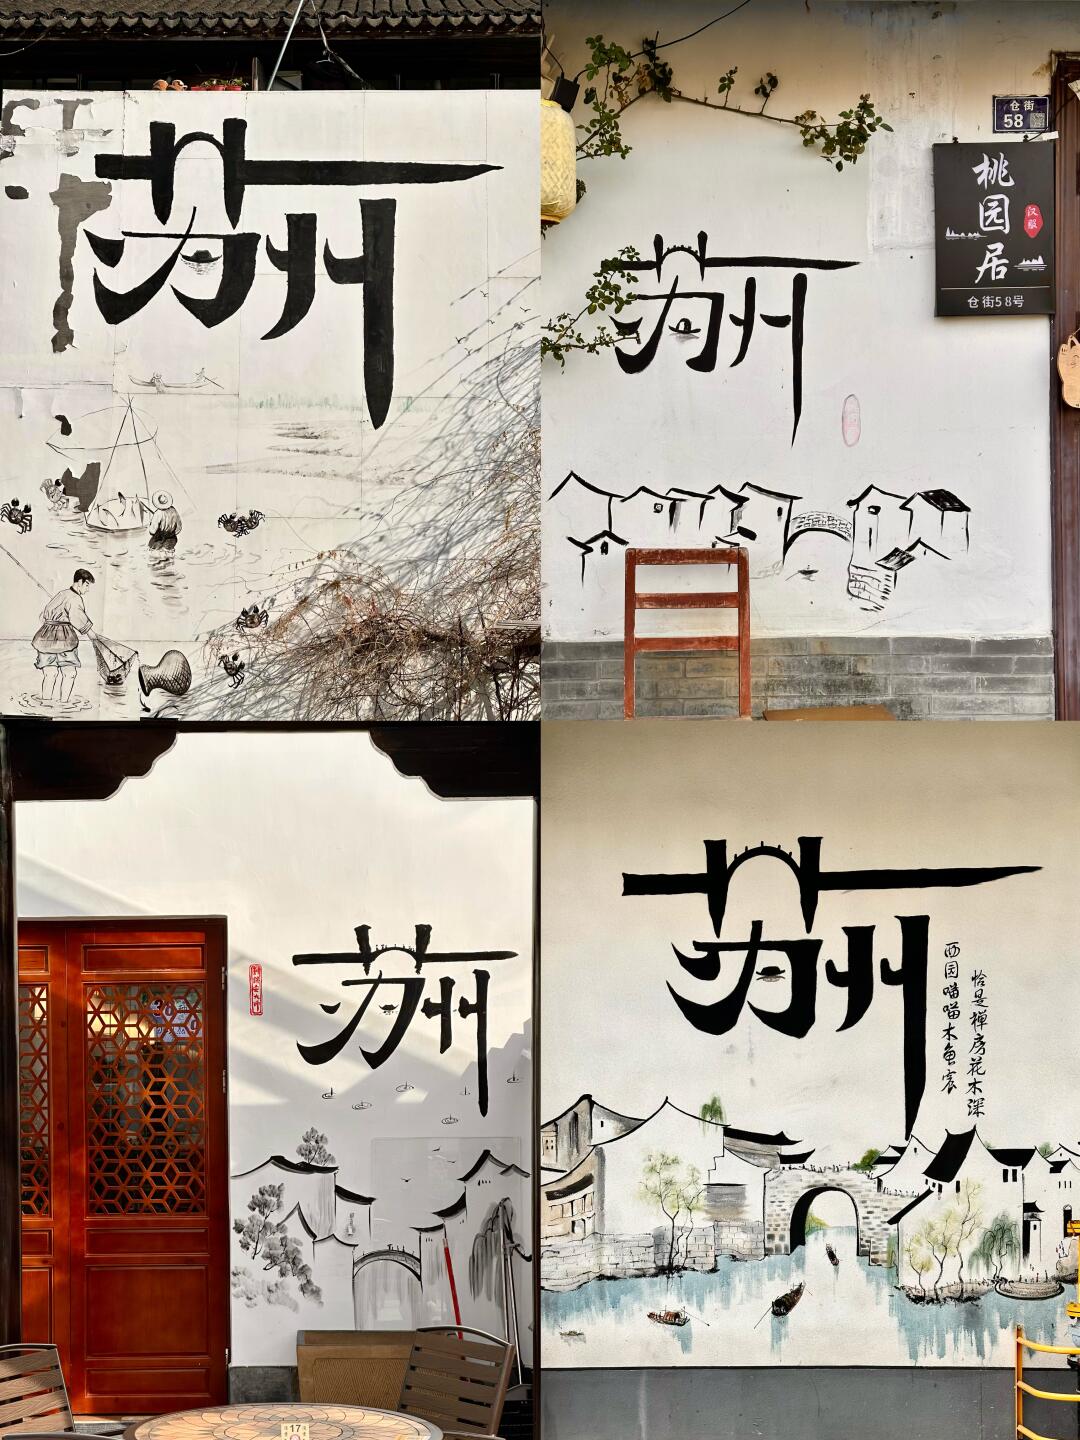 苏州
苏州
仓街
58
桃园居
汉服
仓街58号
苏州
17
苏州
西园喵喵木鱼宸
恰是禅房花木深